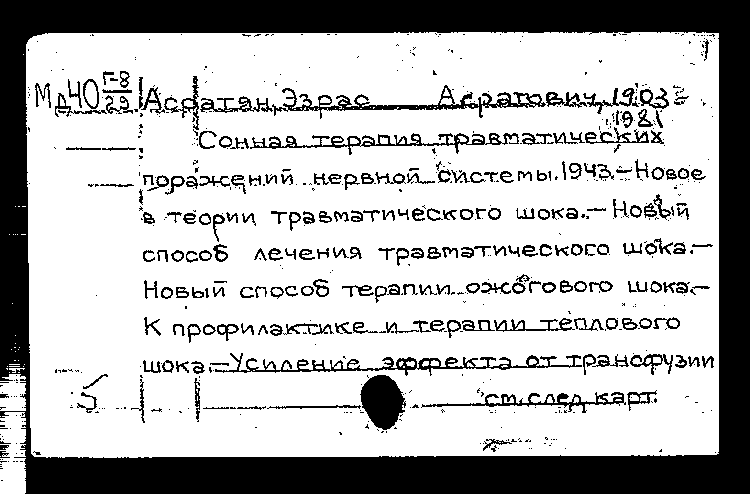 Мд40 Г-8/29 Асратян, Эзрас Асратович, 1903-
1981
Сонная терапия травматических
поражений нервной системы. 1943. — Новое
в теории травматического шока. — Новый
способ лечения травматического шока. —
Новый способ терапии ожогового шока. —
К профилактике и терапии теплового
шока. — Усиление эффекта от трансфузии
5
см. след. карт.